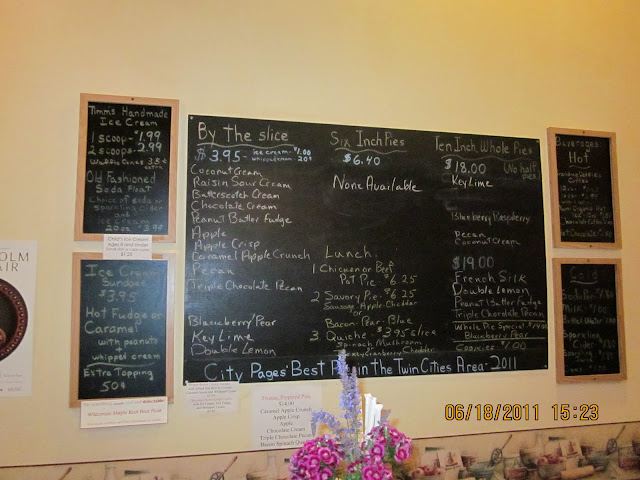 Timm's Handmade
Ice Cream
1 scoop - $1.99
2 scoops - 2.99
Waffle Cones 35¢
extra
Old Fashioned
Soda Float
Choice of soda
or
sparkling cider
and
Ice Cream
20oz $3.99
Child's Ice Cream
ages 6 and under
$1.25
Ice Cream
Sundaes
$3.95
Hot Fudge or
Caramel
with peanuts
+
whipped cream
Extra Topping
50¢
Wisconsin Maple Root Beer Float
By the slice
$3.95 - ice cream - $1.00
whipped cream - 20¢
Coconut Cream
Raisin Sour Cream
Butterscotch Cream
Chocolate Cream
Peanut Butter Fudge
Apple
Apple Crisp
Caramel Apple Crunch
Pecan
Triple Chocolate Pecan
Blueberry/Pear
Key Lime
Double Lemon
Six Inch Pies
$6.40
None Available
Lunch.
1 Chicken or Beef
Pot Pie $6.25
2 Savory Pie $6.25
Sausage Apple-Cheddar
or
Bacon-Pear-Blue
3. Quiche $3.95 slice
Spinach Mushroom
Cheddar
Ten Inch Whole Pies
$18.00 (No half pies)
Key Lime
Blueberry Raspberry
Pecan
Coconut Cream
$19.00
French Silk
Double Lemon
Peanut Butter Fudge
Triple Chocolate Pecan
Whole Pie Special
Blackberry Pear
Cookies $1.00
City Pages' Best Pie in the Twin Cities Area - 2011
Beverages
Hot
Hot Chocolate
Cold
Soda Pop
Milk
Bottled Water
Sparkling
Cider
Frozen, Prepared Pies
$14.00
Caramel Apple Crunch
Apple Crisp
Apple
Chocolate Cream
Triple Chocolate Pecan
Bacon Spinach Quiche
OLM
AIR
06/18/2011 15:23